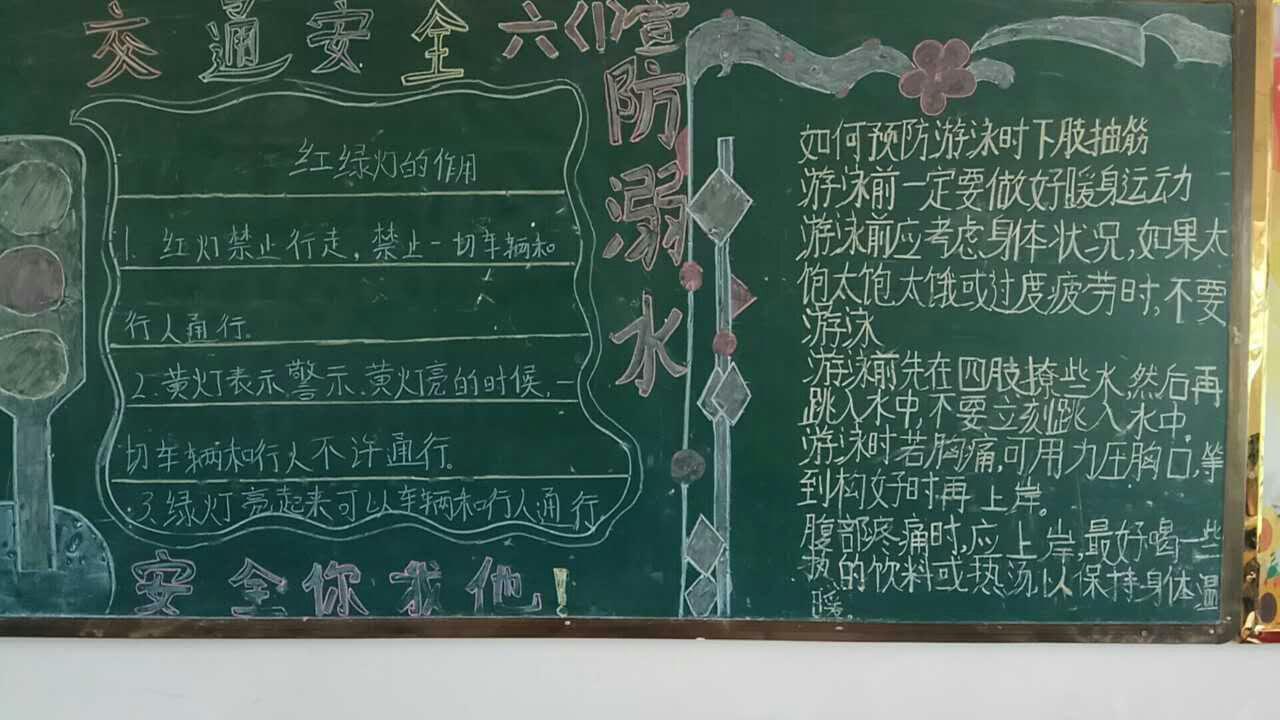 交通安全 六(1)宣
防溺水
红绿灯的作用
1. 红灯禁止行走，禁止一切车辆和
行人通行。
2. 黄灯表示警示、黄灯亮的时候，一
切车辆和行人不许通行。
3. 绿灯亮起来可以车辆和行人通行
安全你我他！
如何预防游泳时下肢抽筋
游泳前一定要做好暖身运动
游泳前应考虑身体状况，如果太
饱太饱太饿或过度疲劳时，不要
游泳
游泳前先在四肢撩些水，然后再
跳入水中，不要立刻跳入水中。
游泳时若胸痛，可用力压胸口，等
到构好时再上岸。
腹部疼痛时，应上岸，最好喝一些
热的饮料或热汤，以保持身体温
暖。